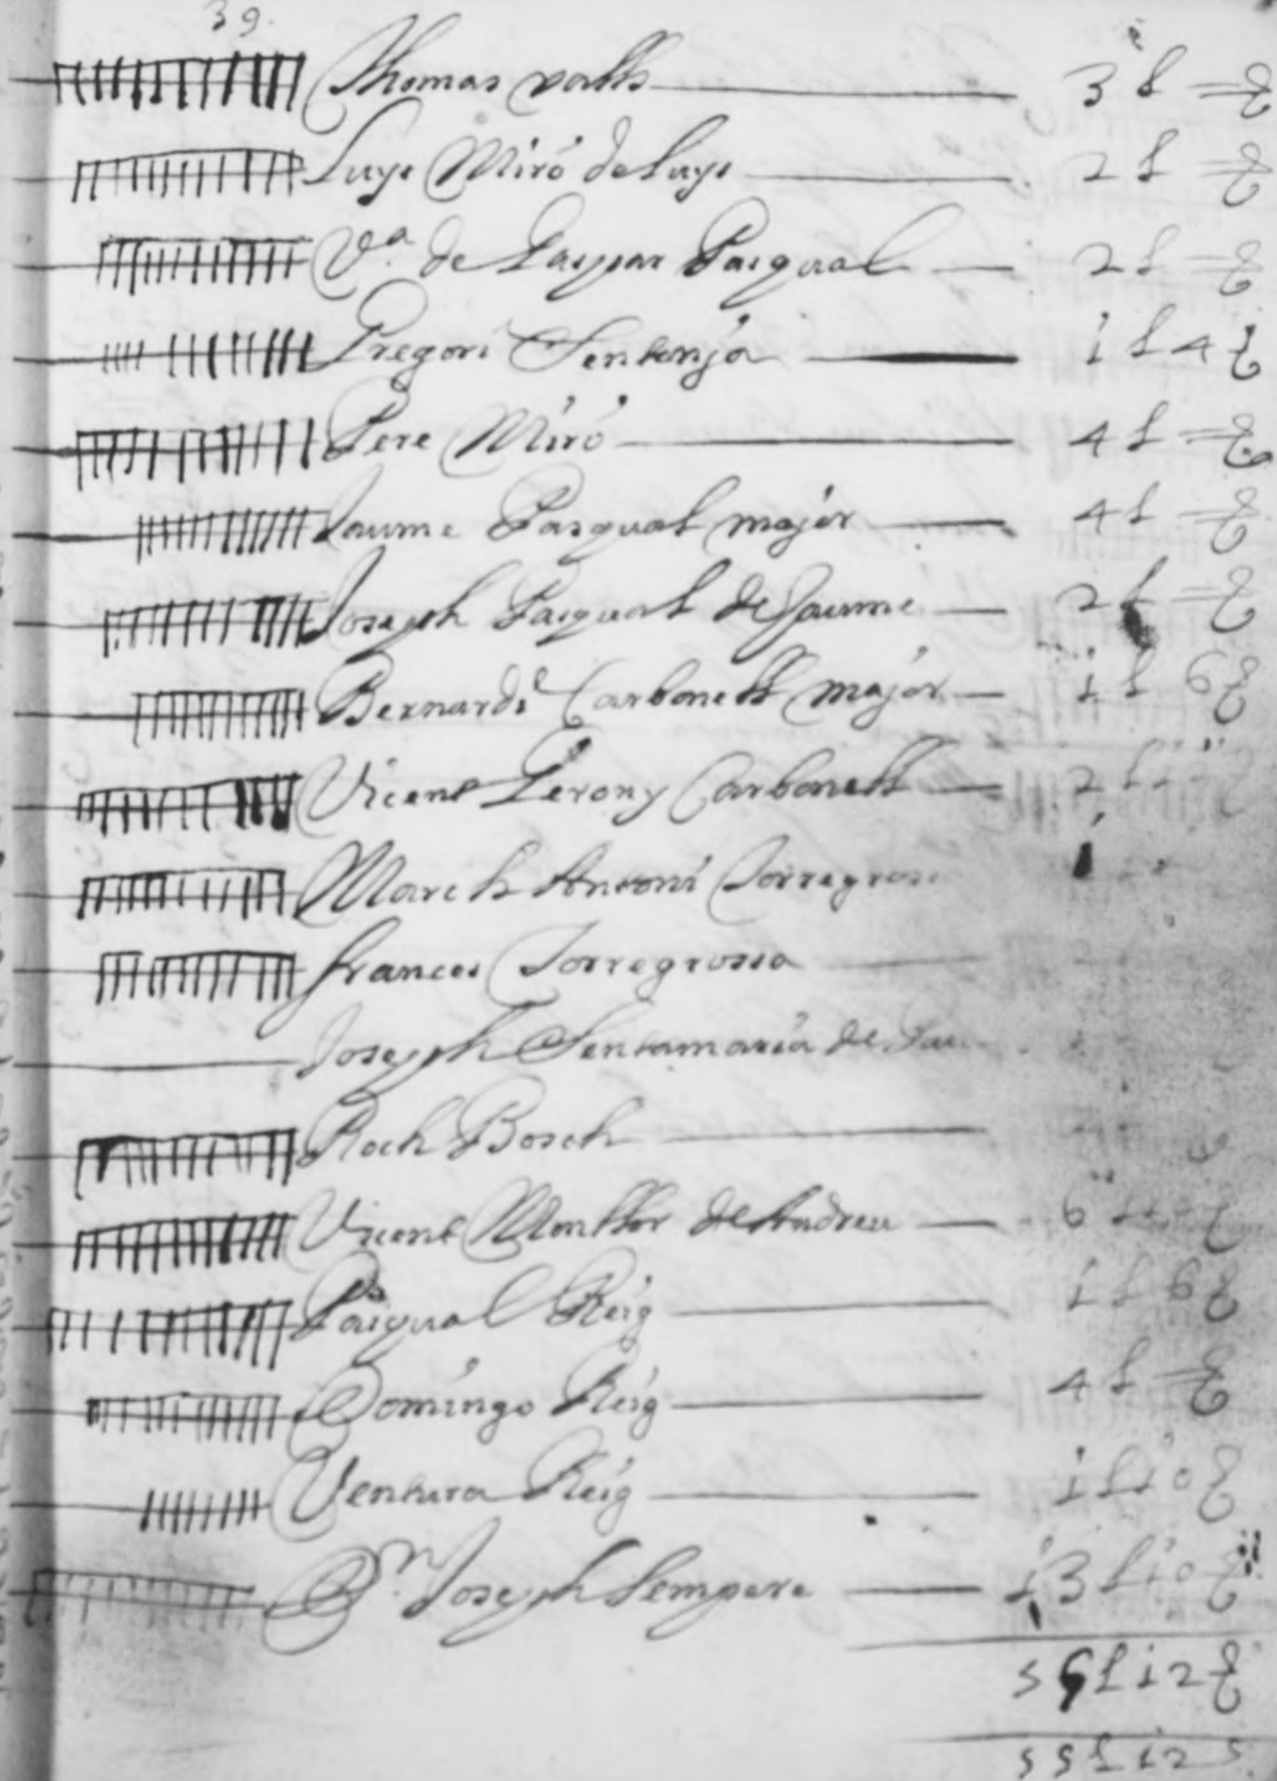 39.
Thomas valls 3 £ = ß
Luys Miró de Luys 2 £ = ß
V.ª de Gaspar Pasqual 2 £ = ß
Gregori Sentonja 1 £ 4 ß
Pere Miró 4 £ = ß
Jaume Pasqual major 4 £ = ß
Joseph Pasqual de Jaume 2 £ = ß
Bernardi Carbonell major 1 £ 6 ß
Vicent Gerony Carbonell 2 £
March Antoni Torregrosa
Frances Torregrossa
Joseph Sentamaria de
Roch Bosch
Vicent Monllor de Andreu 6 £
Pasqual Reig 1 £ 6 ß
Domingo Reig 4 £ = ß
Ventura Reig 1 £ 10 ß
D.n Joseph Sempere 13 £ 10 ß
£ 12 ß
55 £ 12 s